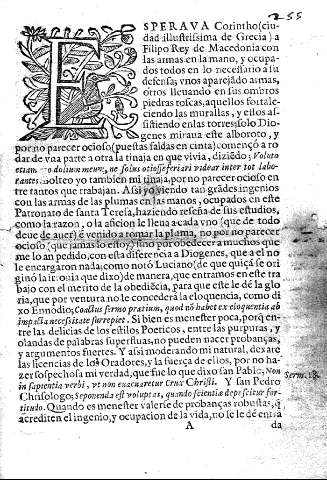 255
ESPERAVA Corintho (ciu
dad illustrissima de Grecia) a
Filipo Rey de Macedonia con
las armas en la mano, y ocupa
dos todos en lo necessario a su
defensa; vnos aparejado armas,
otros lleuando en sus ombros
piedras toscas, aquellos fortale-
ciendo las murallas, y estos as-
sistiendo en las torres; solo Dio-
genes miraua este alboroto, y
por no parecer ocioso (puestas faldas en cinta) començò a ro
dar de vna parte a otra la tinaja en que viuia, diziẽdo; Voluto
etiam ego dolium meum, ne solus otiosè feriari videar inter tot labo-
rantes. Bolteo yo tambien mi tinaja, por no parecer ocioso en
tre tantos que trabajan. Assi yo viendo tan grãdes ingenios
con las armas de las plumas en las manos, ocupados en este
Patronato de santa Teresa, haziendo reseña de sus estudios,
como la razon, o la aficion le lleua a cada vno (que de todo
deue de auer) è venido a tomar la pluma, no por no parecer
ocioso (que jamas lo estoy) sino por obedecer a muchos que
me lo an pedido, con esta diferencia a Diogenes, que a el no
le encargaron nada, como notó Luciano (de que quiçá se ori
ginò la ironia que dixo) de manera, que entramos en este tra
bajo con el merito de la obediẽcia, para que este le dè la glo
ria, que por ventura no le concederá la eloquencia, como di
xo Ennodio; Coactus sermo pratium, quod nõ habet ex eloquentia ab
impacta necessitate surrepiet. Si bien es menester poca, porq̃ en-
tre las delicias de los estilos Poeticos, entre las purpuras, y
olandas de palabras superfluas, no pueden nacer probanças,
y argumentos fuertes. Y assi moderando mi natural, dexarè
las licencias de los Oradores, y la fuerça de ellos, por no ha-
zer sospechosa mi verdad, que fue lo que dixo san Pablo; Non
in sapientia verbi, vt non euacuretur Crux Christi. Y san Pedro
Serm. 18.
Chrisologo; Seponenda est voluptas, quando scientiæ deposcitur for-
titudo. Quando es menester valerse de probanças robustas, q̃
acrediten el ingenio, y ocupacion de la vida, no se le dè entra
A
da